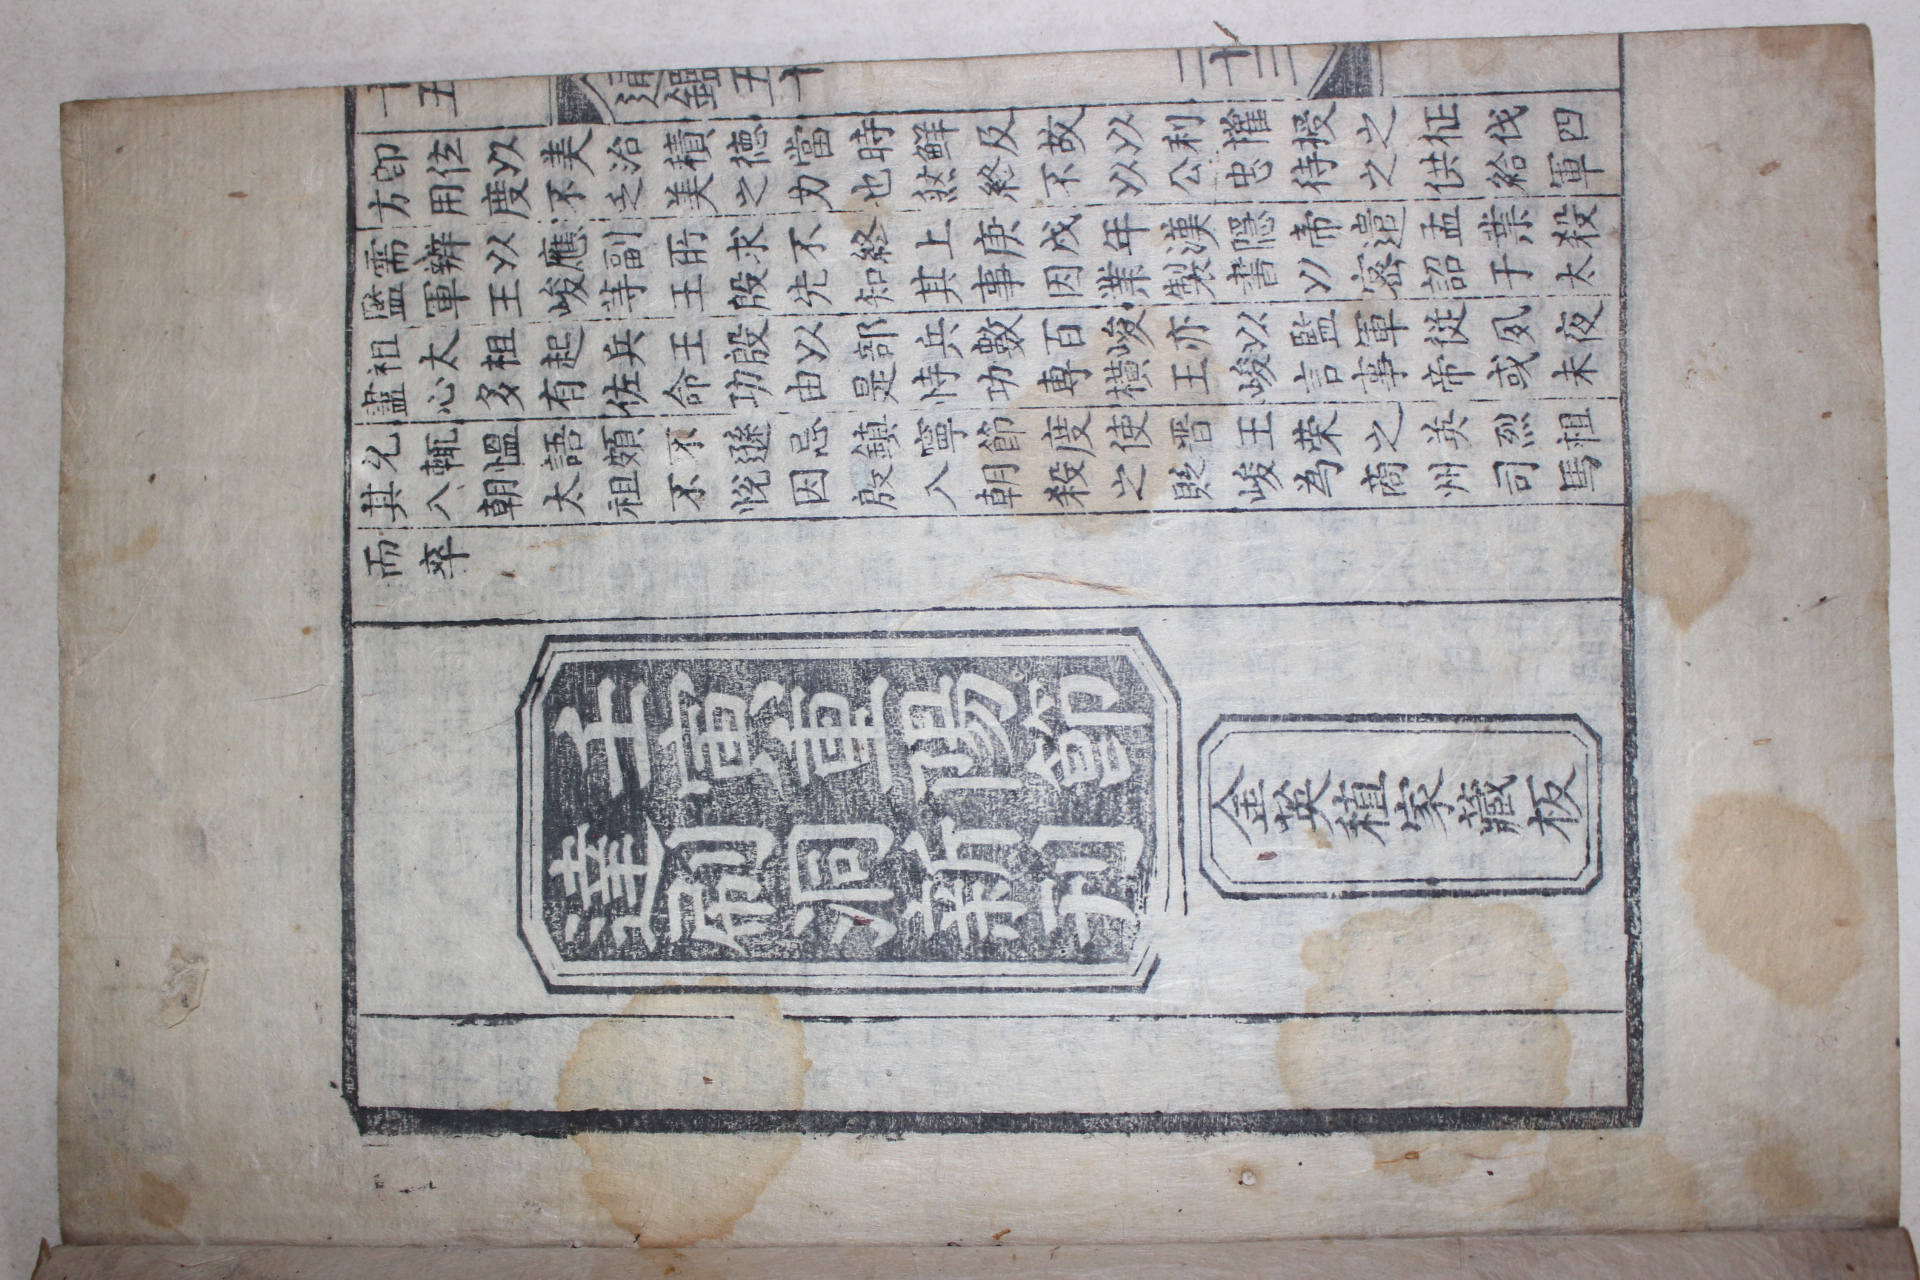 十五
通鑑五十
二十三
即位以美治積德當時鮮及故以利權授之征伐四
方用度不乏美之力也然終不以公忠待之供給軍
需辨以應副所求不終上庚戌年漢隱帝遣孟業殺
監軍王峻等王殷先知其事因業製書以密詔于太
祖太祖起兵王殷以部兵數百峻亦以監軍從夙夜
盡心多有佐命功由是恃功專橫王峻言事帝或未
允輒慍語頗不遜忌鎮寧節度使晋王荣之英烈祖
其入朝太祖不悅因殷入朝殺之貶峻為商州司馬
而卒
壬寅重陽節
達刷洞新刊
金英稙家藏板